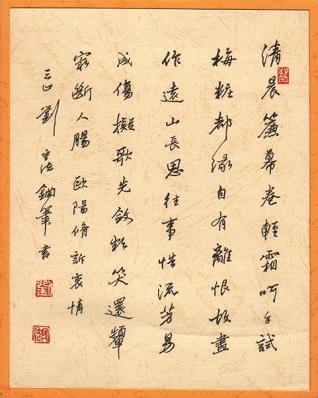 清晨簾幕卷輕霜呵手試
梅粧都緣自有離恨故畫
作遠山長思往事惜流芳易
成傷擬歌先斂欲笑還顰
㝡斷人腸 歐陽脩訴衷情
劉 鋼筆書